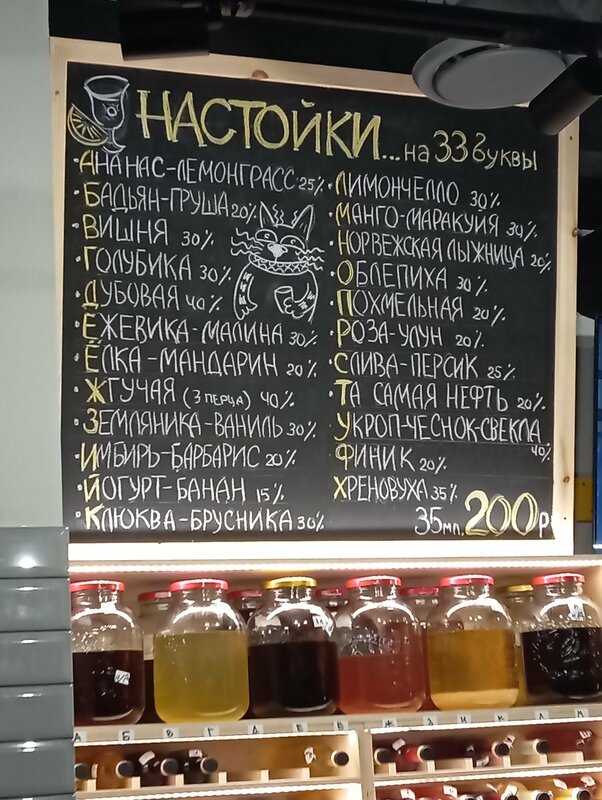 НАСТОЙКИ... на 33 буквы
·АНАНАС-ЛЕМОНГРАСС 25%
·БАДЬЯН-ГРУША 20%
·ВИШНЯ 30%
·ГОЛУБИКА 30%
·ДУБОВАЯ 40%
·ЕЖЕВИКА-МАЛИНА 30%
·ЁЛКА-МАНДАРИН 20%
·ЖГУЧАЯ (3 ПЕРЦА) 40%
·ЗЕМЛЯНИКА-ВАНИЛЬ 30%
·ИМБИРЬ-БАРБАРИС 20%
·ЙОГУРТ-БАНАН 15%
·КЛЮКВА-БРУСНИКА 30%
·ЛИМОНЧЕЛЛО 30%
·МАНГО-МАРАКУЙЯ 30%
·НОРВЕЖСКАЯ ЛЫЖНИЦА 20%
·ОБЛЕПИХА 30%
·ПОХМЕЛЬНАЯ 20%
·РОЗА-УЛУН 20%
·СЛИВА-ПЕРСИК 25%
·ТА САМАЯ НЕФТЬ 20%
·УКРОП-ЧЕСНОК-СВЕКЛА 40%
·ФИНИК 20%
·ХРЕНОВУХА 35%
35мл. 200р
А Б В Г Д Е Ё Ж З И К Л М